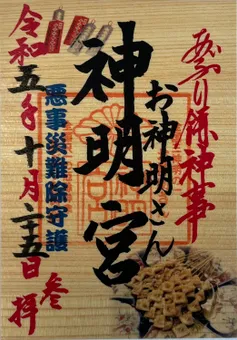 お神明さん
神明宮
悪事災難除守護
令和五年十月二十五日
参拝